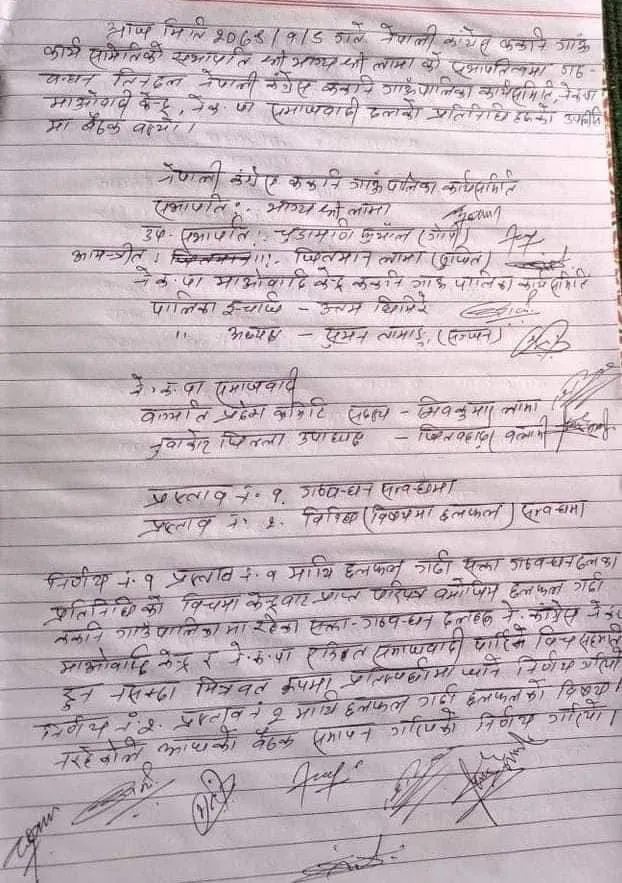 आज मिति २०७९/१/८ गते नेपाली कांग्रेस ककनि गाउँ
कार्य समितिको सभापति श्री भाग्य श्री लामा को सभापतित्वमा गठ-
बन्धन तिनदल नेपाली कंग्रेस ककनि गाउँपालिका कार्यसमिति, ने.क.पा
माओवादी केन्द्र, ने.क.पा समाजवादी दलको प्रतिनिधि हरुको उपस्थिति
मा बैठक बस्यो।
नेपाली कंग्रेस ककनि गाउँपालिका कार्यसमिति
सभापति :- भाग्य श्री लामा
उप-सभापति :- चुडामणि
आमन्त्रीत : जितमान लामा
ने.क.पा माओवादि केन्द्र ककनि गाउँ पालिका कार्यसमिति
पालिका इन्चार्ज - उत्तम घिमिरे
" अध्यक्ष - सुमन तामाङ्ग
ने.क.पा समाजवादी
वाग्मति प्रदेश कमिटि सदस्य - शिवकुमार लामा
नुवाकोट जिल्ला उपाध्यक्ष - जितबहादुर
प्रस्ताव नं. १. गठबन्धन सम्बन्धमा
प्रस्ताव नं. २. विविध (विषयमा छलफल) सम्बन्धमा
निर्णय नं. १ प्रस्ताव नं. १ माथि छलफल गर्दा सत्ता गठबन्धन दलका
प्रतिनिधिको विचमा केन्द्रबाट प्राप्त परिपत्र बमोजिम छलफल गर्दा
ककनि गाउँपालिका मा रहेका सत्ता-गठबन्धन दलहरु ने. कांग्रेस ने.क.पा
माओवादि केन्द्र र ने.क.पा एकिकृत समाजवादी पार्टिको विच सहमति
हुन नसक्दा मित्रवत रुपमा प्रतिस्पर्धामा जाने निर्णय गरियो
निर्णय नं. २. प्रस्ताव नं २ माथि छलफल गर्दा छलफलको विषय
नरहेकोले आजको बैठक समापन गरिएको निर्णय गरियो।